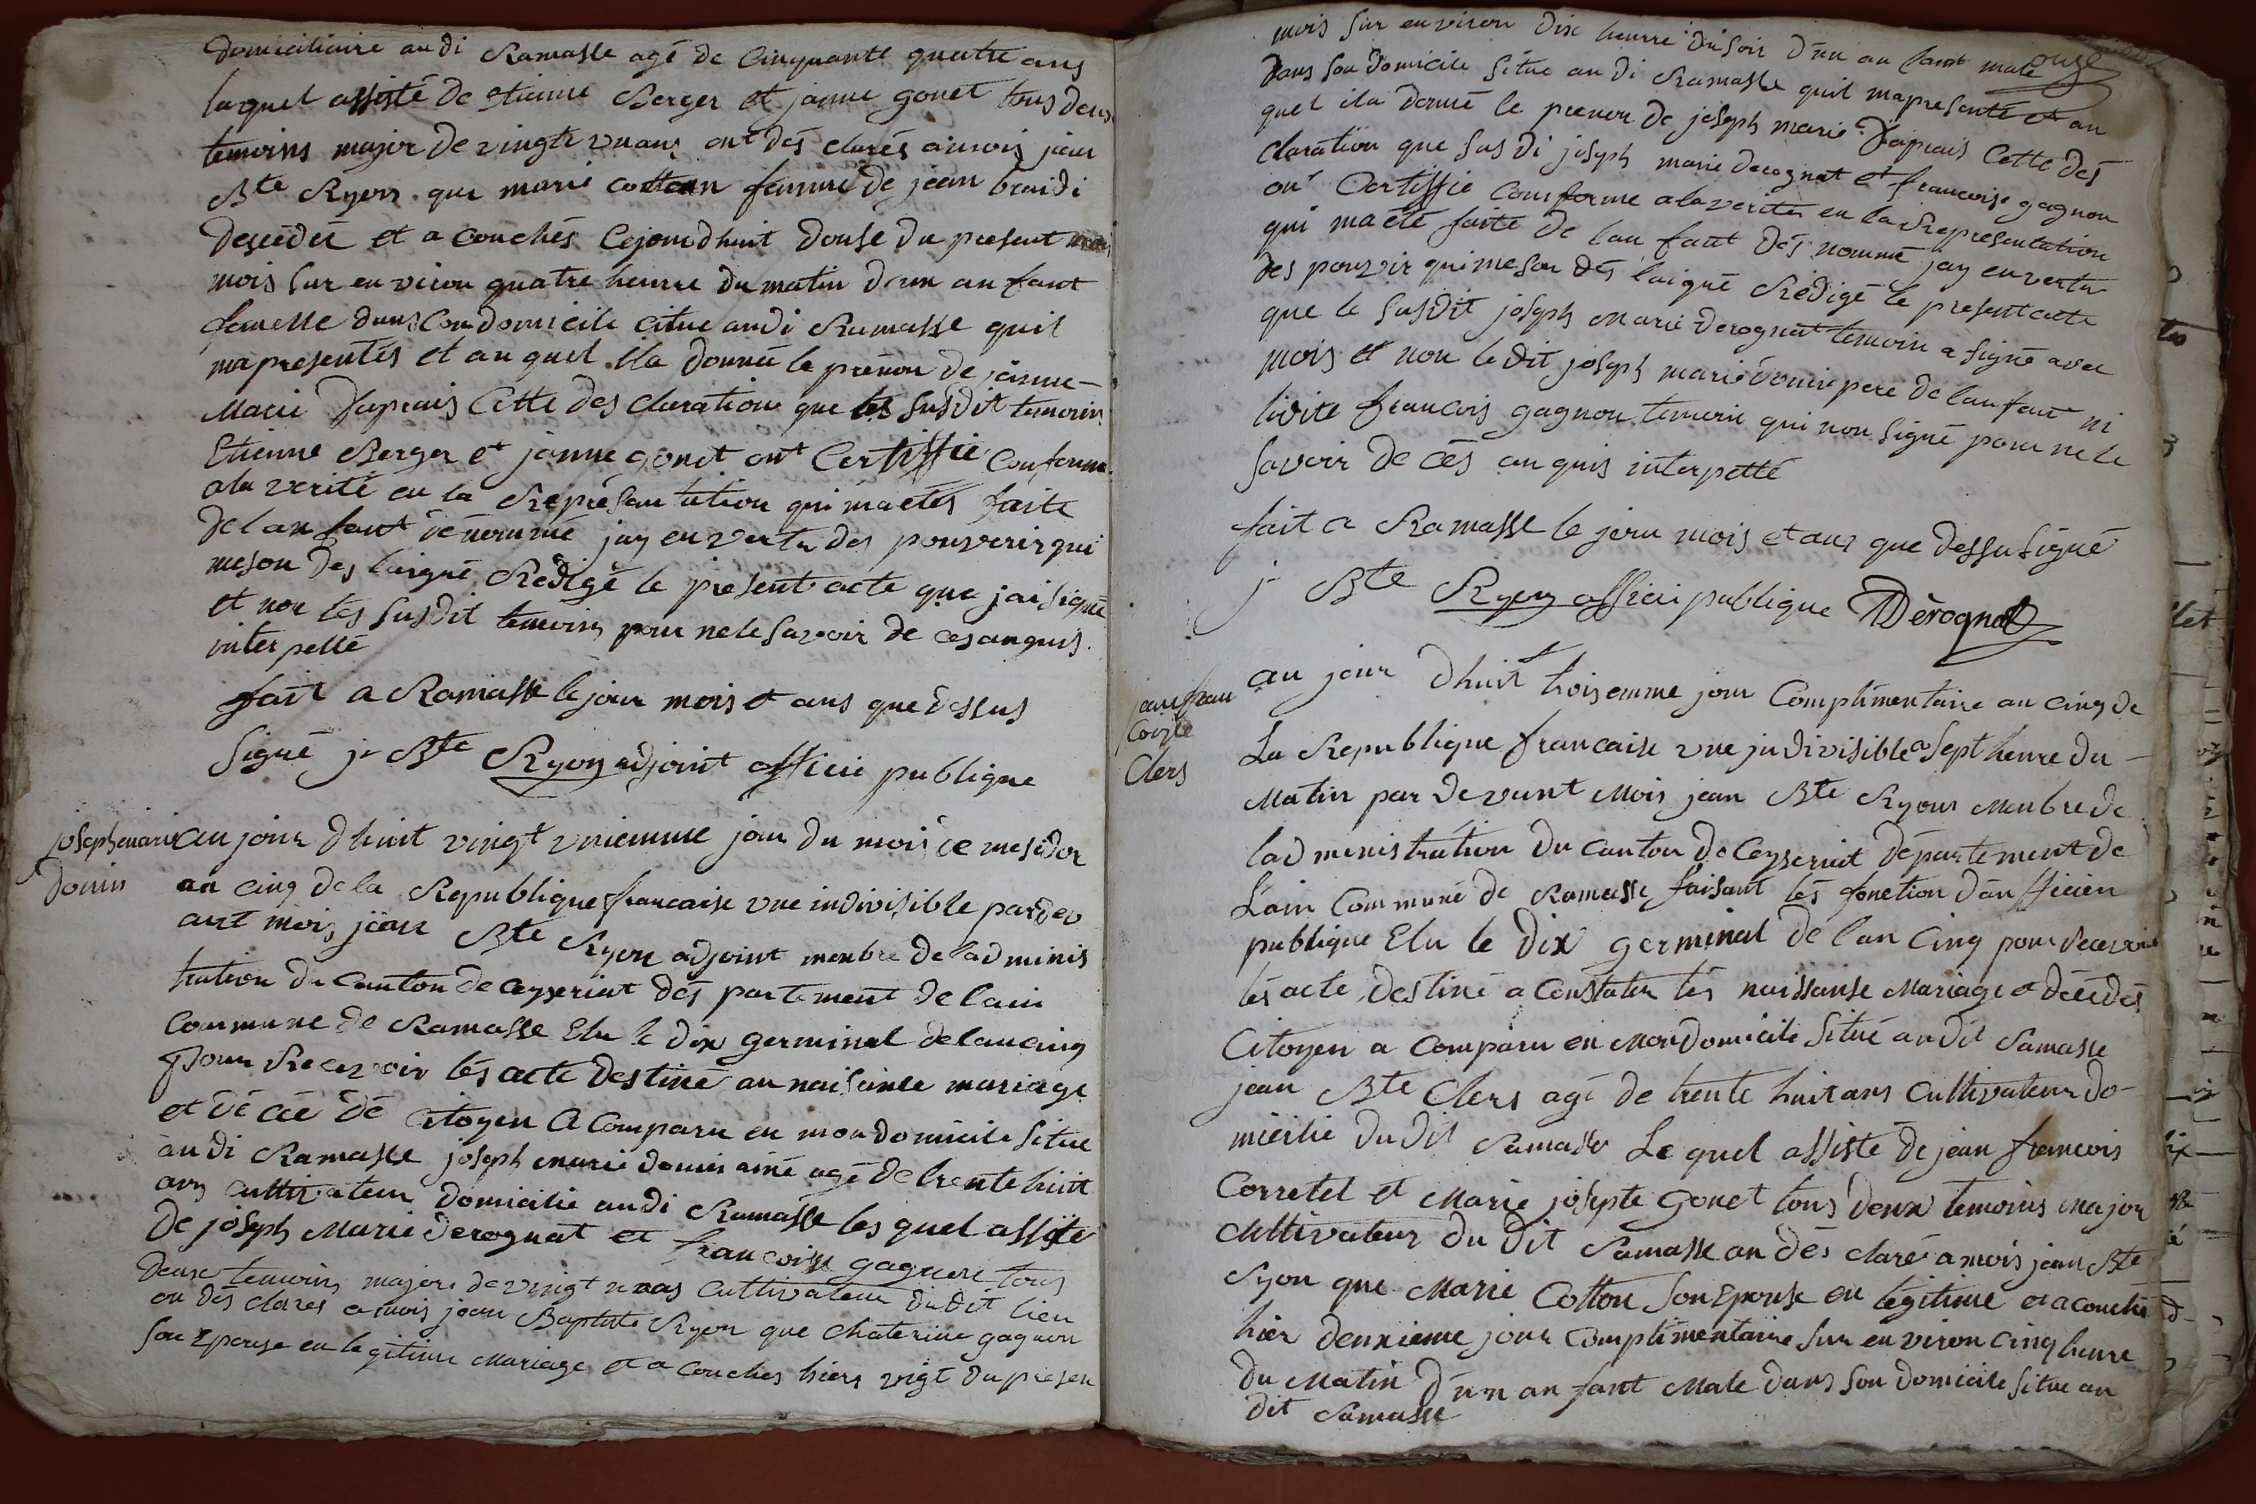 domiciliaire au di Ramasse agé de Cinquante quatre ans
laquel assisté de etienne Berger et janne gonet tous deux
temoins major de vingte vnans ont dés clarés amois jean
Bte Ryon que marie cottan femme de jean braidi
desceèdèé et a couchés Cejourdhuit douse du present
mois sur en viron quatre heurre du matin d'un an fant
femesse dans son domicile citue audi Ramasse quil
mapresentés et au quel ila donnée le prénon de janne-
Marie dapprais Cette des claration que les susdit temoins
Etienne Berger et janne gonet ont Certiffié Conforme
ala verité en la Représantation qui maetés faite
delan fant dénommé jay en vertu des pouvoirs qui
meson des laigué Redigé le present acte que jai signé
et non les susdit temoins pour ne le savoir de ces anquis
interpellé
fait a Ramasse le jour mois et ans que dessus
Signé j- Bte Ryon adjoint officié publique
joseph marie
donin
au jour dhuit vingt vniemme jour du mois de mesidor
an cinq de la Republique francaise vne indivisible pardev
ant mois jean Bte Ryon adjoint menbre deladminis
tration du canton de ceyzeriat dés partement de lain
Commune de Ramasse Elu le dix germinal de lancinq
pour Recevoir lés acte destiné au naisance mariage
et dé cée dé Citoyen a comparu en mon domicile situe
audi Ramasse joseph marie donin ainé agé de trente huit
ans cultivateur domicilie audi Ramasse les quel assisté
de joseph Marie derognat et francoise gagnon tous
deux temoins majore de vingt unans cultivateur du dit lieu
on dés clares a mois jean Baptiste Ryon que chaterine gagnon
son Epouse en legitime mariage et a couches hiers vigt du presen
onze
mois sur en viron dix heurre du soir d'un an fant male
dans son domicile situe au di Ramasse quil mapresenté et au
quel ila donné le prenon de joseph marie dapprais Cette dés
claration que sus di joseph marie derognat et francoise gagnon
ont Certiffié Comforme ala verités en la Représentation
qui maété faite de lan fant dés nommé jay en vertu
des pouvoir qui meson dés laigué Rédigé le present acte
que le susdit joseph marie derognat temoin a signé avec
mois et non le dit joseph marie donin pere de lanfant ni
ladite francois gagnon temoin qui non signé pour ne le
savoir de cés anquis interpellé
fait a Ramasse le jour mois et ans que dessu signé
j- Bte Ryon officié publique Dérognat
jean fran
Cois
Clers
au jour dhuit troisemme jour Complimentaire an cinq de
La Republique francaise vne jndivisible a sept heure du -
Matin par devant mois jean Bte Ryon Menbre de
lad ministration du canton de Ceyzeriat département de
L'ain Commune de Ramasse faisant lés fonction d'an fficien
publique Elu le dix germinal de l'an Cinq pour recevoir
les acte destiné a Constater lés naissanse Mariage et décedés
Citoyen a comparu en Mon domicile situé audit Ramasse
jean Bte Clers agé de trente huit ans cultivateur do-
micilie du dit Ramasse Le quel assisté de jean francois
Corretel et Marie josepte Gonet tous deux temoins Major
cultivateur du dit Ramasse an dés claré a mois jean Bte
Ryon que Marie Cotton son Epouse en légitime et a couchés
hier deuxieme jour complimentaire sur en viron cinq heure
du Matin d'un an fant Male dans son domicile situe au
dit Ramasse